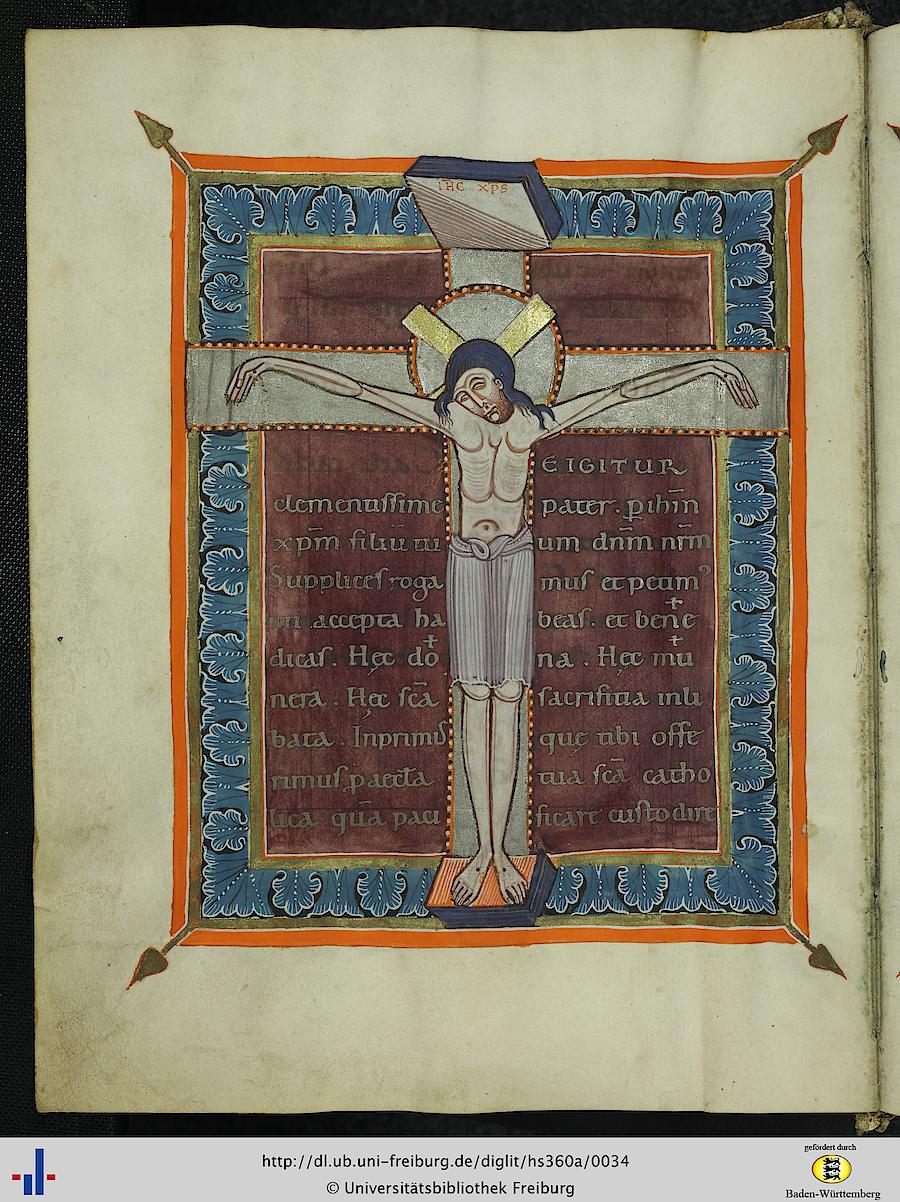 IHC XPS
EIGITUR
clementissime pater. p ihm̅
xpm̅ filiu̅ tu um dn̅m nr̅m
Supplices roga mus et petim⁹
uti accepta ha beas. et bene
dicas. Hęc do̅ na. Hęc mu
nera. Hęc sc̅a sacrifitia inli
bata. Inprimis quę tibi offe
rimus p aeccl̅a tua sc̅a catho
lica qua̅ paci ficare custodire
http://dl.ub.uni-freiburg.de/diglit/hs360a/0034
© Universitätsbibliothek Freiburg
gefördert durch
Baden-Württemberg